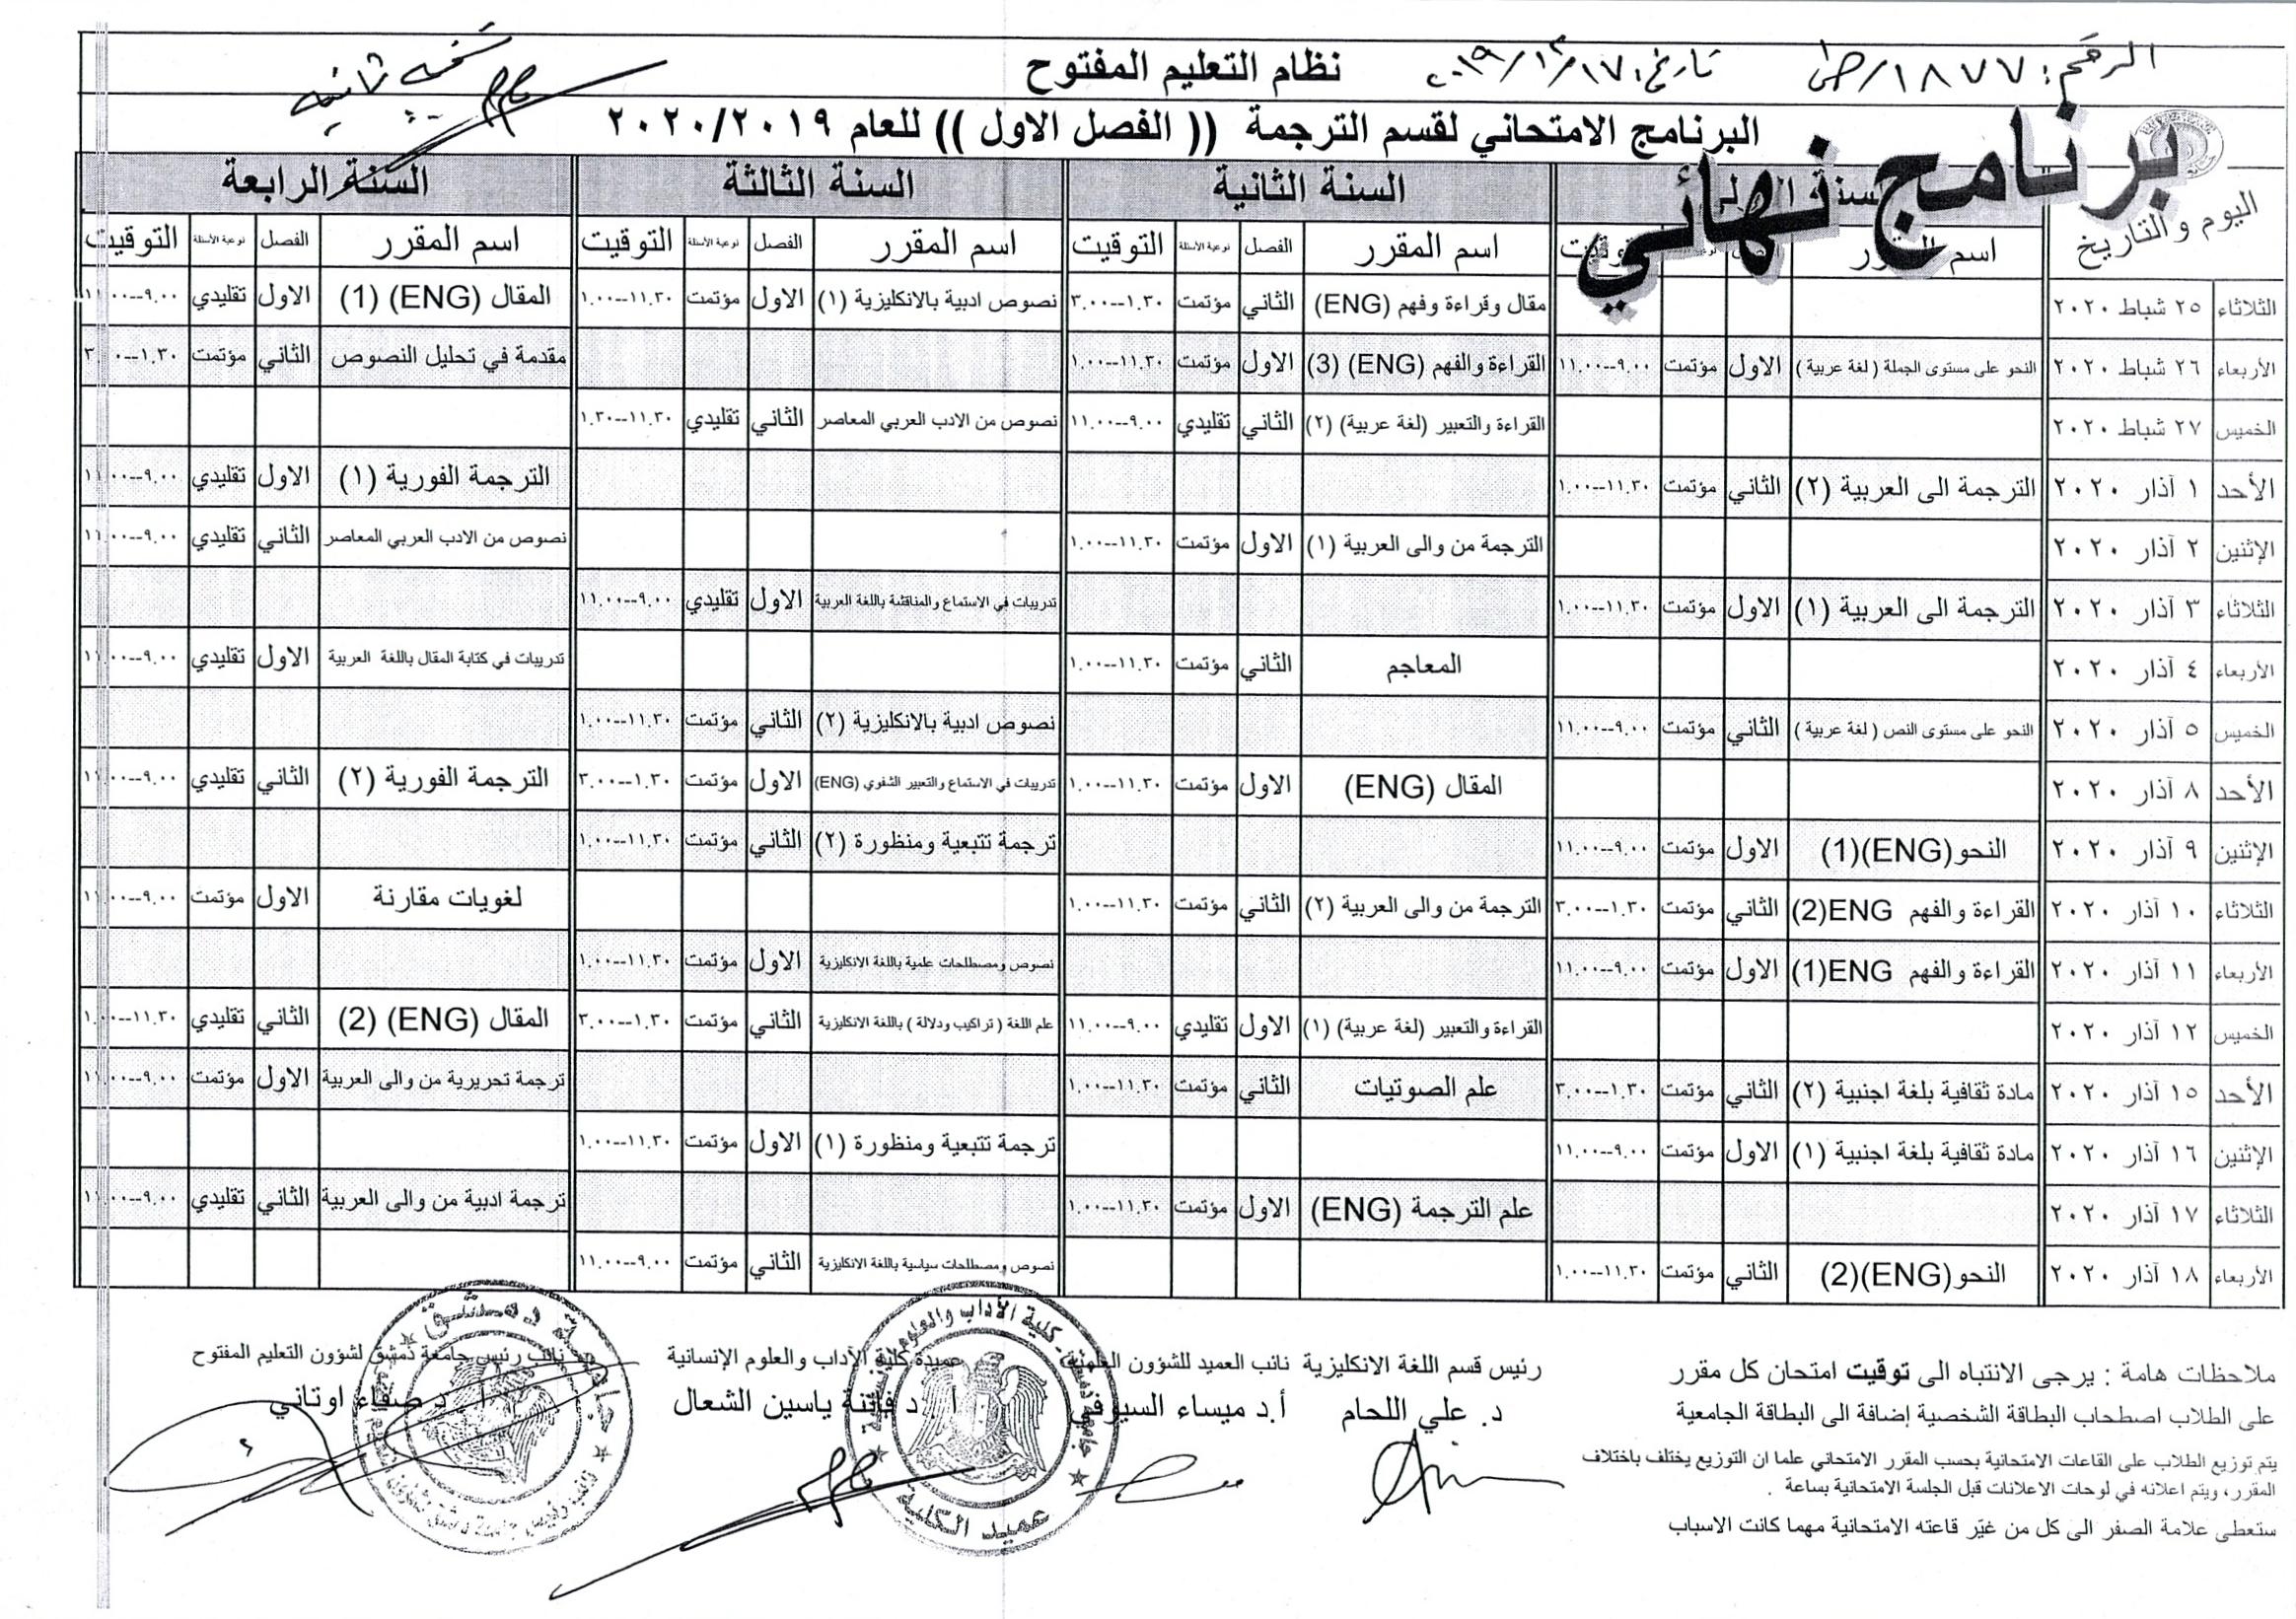 الرقم: ١٨٧٧/ص ط تاريخ: ٢٠١٩/١٢/١٧ نظام التعليم المفتوح نسخة ثانية
البرنامج الامتحاني لقسم الترجمة (( الفصل الاول )) للعام ٢٠٢٠/٢٠١٩
برنامج نهائي
اليوم والتاريخ السنة الثانية السنة الثالثة السنة الرابعة
اسم المقرر التوقيت اسم المقرر الفصل نوعية الاسئلة التوقيت اسم المقرر الفصل نوعية الاسئلة التوقيت اسم المقرر الفصل نوعية الاسئلة التوقيت
الثلاثاء ٢٥ شباط ٢٠٢٠ مقال وقراءة وفهم (ENG) الثاني مؤتمت ١.٣٠--٣.٠٠ نصوص ادبية بالانكليزية (١) الاول مؤتمت ١١.٣٠--١.٠٠ المقال (ENG) (1) الاول تقليدي ٩.٠٠--١١.٠٠
الأربعاء ٢٦ شباط ٢٠٢٠ النحو على مستوى الجملة ( لغة عربية ) الاول مؤتمت ٩.٠٠--١١.٠٠ القراءة والفهم (ENG) (3) الاول مؤتمت ١١.٣٠--١.٠٠ مقدمة في تحليل النصوص الثاني مؤتمت ١.٣٠--٣.٠٠
الخميس ٢٧ شباط ٢٠٢٠ القراءة والتعبير (لغة عربية) (٢) الثاني تقليدي ٩.٠٠--١١.٠٠ نصوص من الادب العربي المعاصر الثاني تقليدي ١١.٣٠--١.٣٠
الأحد ١ آذار ٢٠٢٠ الترجمة الى العربية (٢) الثاني مؤتمت ١١.٣٠--١.٠٠ الترجمة الفورية (١) الاول تقليدي ٩.٠٠--١١.٠٠
الإثنين ٢ آذار ٢٠٢٠ الترجمة من والى العربية (١) الاول مؤتمت ١١.٣٠--١.٠٠ نصوص من الادب العربي المعاصر الثاني تقليدي ٩.٠٠--١١.٠٠
الثلاثاء ٣ آذار ٢٠٢٠ الترجمة الى العربية (١) الاول مؤتمت ١١.٣٠--١.٠٠ تدريبات في الاستماع والمناقشة باللغة العربية الاول تقليدي ٩.٠٠--١١.٠٠
الأربعاء ٤ آذار ٢٠٢٠ المعاجم الثاني مؤتمت ١١.٣٠--١.٠٠ تدريبات في كتابة المقال باللغة العربية الاول تقليدي ٩.٠٠--١١.٠٠
الخميس ٥ آذار ٢٠٢٠ النحو على مستوى النص ( لغة عربية ) الثاني مؤتمت ٩.٠٠--١١.٠٠ نصوص ادبية بالانكليزية (٢) الثاني مؤتمت ١١.٣٠--١.٠٠
الأحد ٨ آذار ٢٠٢٠ المقال (ENG) الاول مؤتمت ١١.٣٠--١.٠٠ تدريبات في الاستماع والتعبير الشفوي (ENG) الاول مؤتمت ١.٣٠--٣.٠٠ الترجمة الفورية (٢) الثاني تقليدي ٩.٠٠--١١.٠٠
الإثنين ٩ آذار ٢٠٢٠ النحو(ENG)(1) الاول مؤتمت ٩.٠٠--١١.٠٠ ترجمة تتبعية ومنظورة (٢) الثاني مؤتمت ١١.٣٠--١.٠٠
الثلاثاء ١٠ آذار ٢٠٢٠ القراءة والفهم ENG(2) الثاني مؤتمت ١.٣٠--٣.٠٠ الترجمة من والى العربية (٢) الثاني مؤتمت ١١.٣٠--١.٠٠ لغويات مقارنة الاول مؤتمت ٩.٠٠--١١.٠٠
الأربعاء ١١ آذار ٢٠٢٠ القراءة والفهم ENG(1) الاول مؤتمت ٩.٠٠--١١.٠٠ نصوص ومصطلحات علمية باللغة الانكليزية الاول مؤتمت ١١.٣٠--١.٠٠
الخميس ١٢ آذار ٢٠٢٠ القراءة والتعبير (لغة عربية) (١) الاول تقليدي ٩.٠٠--١١.٠٠ علم اللغة ( تراكيب ودلالة ) باللغة الانكليزية الثاني مؤتمت ١.٣٠--٣.٠٠ المقال (ENG) (2) الثاني تقليدي ١١.٣٠--١.٠٠
الأحد ١٥ آذار ٢٠٢٠ مادة ثقافية بلغة اجنبية (٢) الثاني مؤتمت ١.٣٠--٣.٠٠ علم الصوتيات الثاني مؤتمت ١١.٣٠--١.٠٠ ترجمة تحريرية من والى العربية الاول مؤتمت ٩.٠٠--١١.٠٠
الإثنين ١٦ آذار ٢٠٢٠ مادة ثقافية بلغة اجنبية (١) الاول مؤتمت ٩.٠٠--١١.٠٠ ترجمة تتبعية ومنظورة (١) الاول مؤتمت ١١.٣٠--١.٠٠
الثلاثاء ١٧ آذار ٢٠٢٠ علم الترجمة (ENG) الاول مؤتمت ١١.٣٠--١.٠٠ ترجمة ادبية من والى العربية الثاني تقليدي ٩.٠٠--١١.٠٠
الأربعاء ١٨ آذار ٢٠٢٠ النحو(ENG)(2) الثاني مؤتمت ١١.٣٠--١.٠٠ نصوص ومصطلحات سياسية باللغة الانكليزية الثاني مؤتمت ٩.٠٠--١١.٠٠
ملاحظات هامة : يرجى الانتباه الى توقيت امتحان كل مقرر
على الطلاب اصطحاب البطاقة الشخصية إضافة الى البطاقة الجامعية
يتم توزيع الطلاب على القاعات الامتحانية بحسب المقرر الامتحاني علما ان التوزيع يختلف باختلاف
المقرر، ويتم اعلانه في لوحات الاعلانات قبل الجلسة الامتحانية بساعة .
ستعطى علامة الصفر الى كل من غيّر قاعته الامتحانية مهما كانت الاسباب
رئيس قسم اللغة الانكليزية نائب العميد للشؤون العلمية عميدة كلية الآداب والعلوم الإنسانية نائب رئيس جامعة دمشق لشؤون التعليم المفتوح
د. علي اللحام أ.د ميساء السيوفي أ.د فاتنة ياسين الشعال أ.د صفاء اوتاني
كلية الآداب والعلوم الإنسانية
عميد الكلية
جامعة دمشق